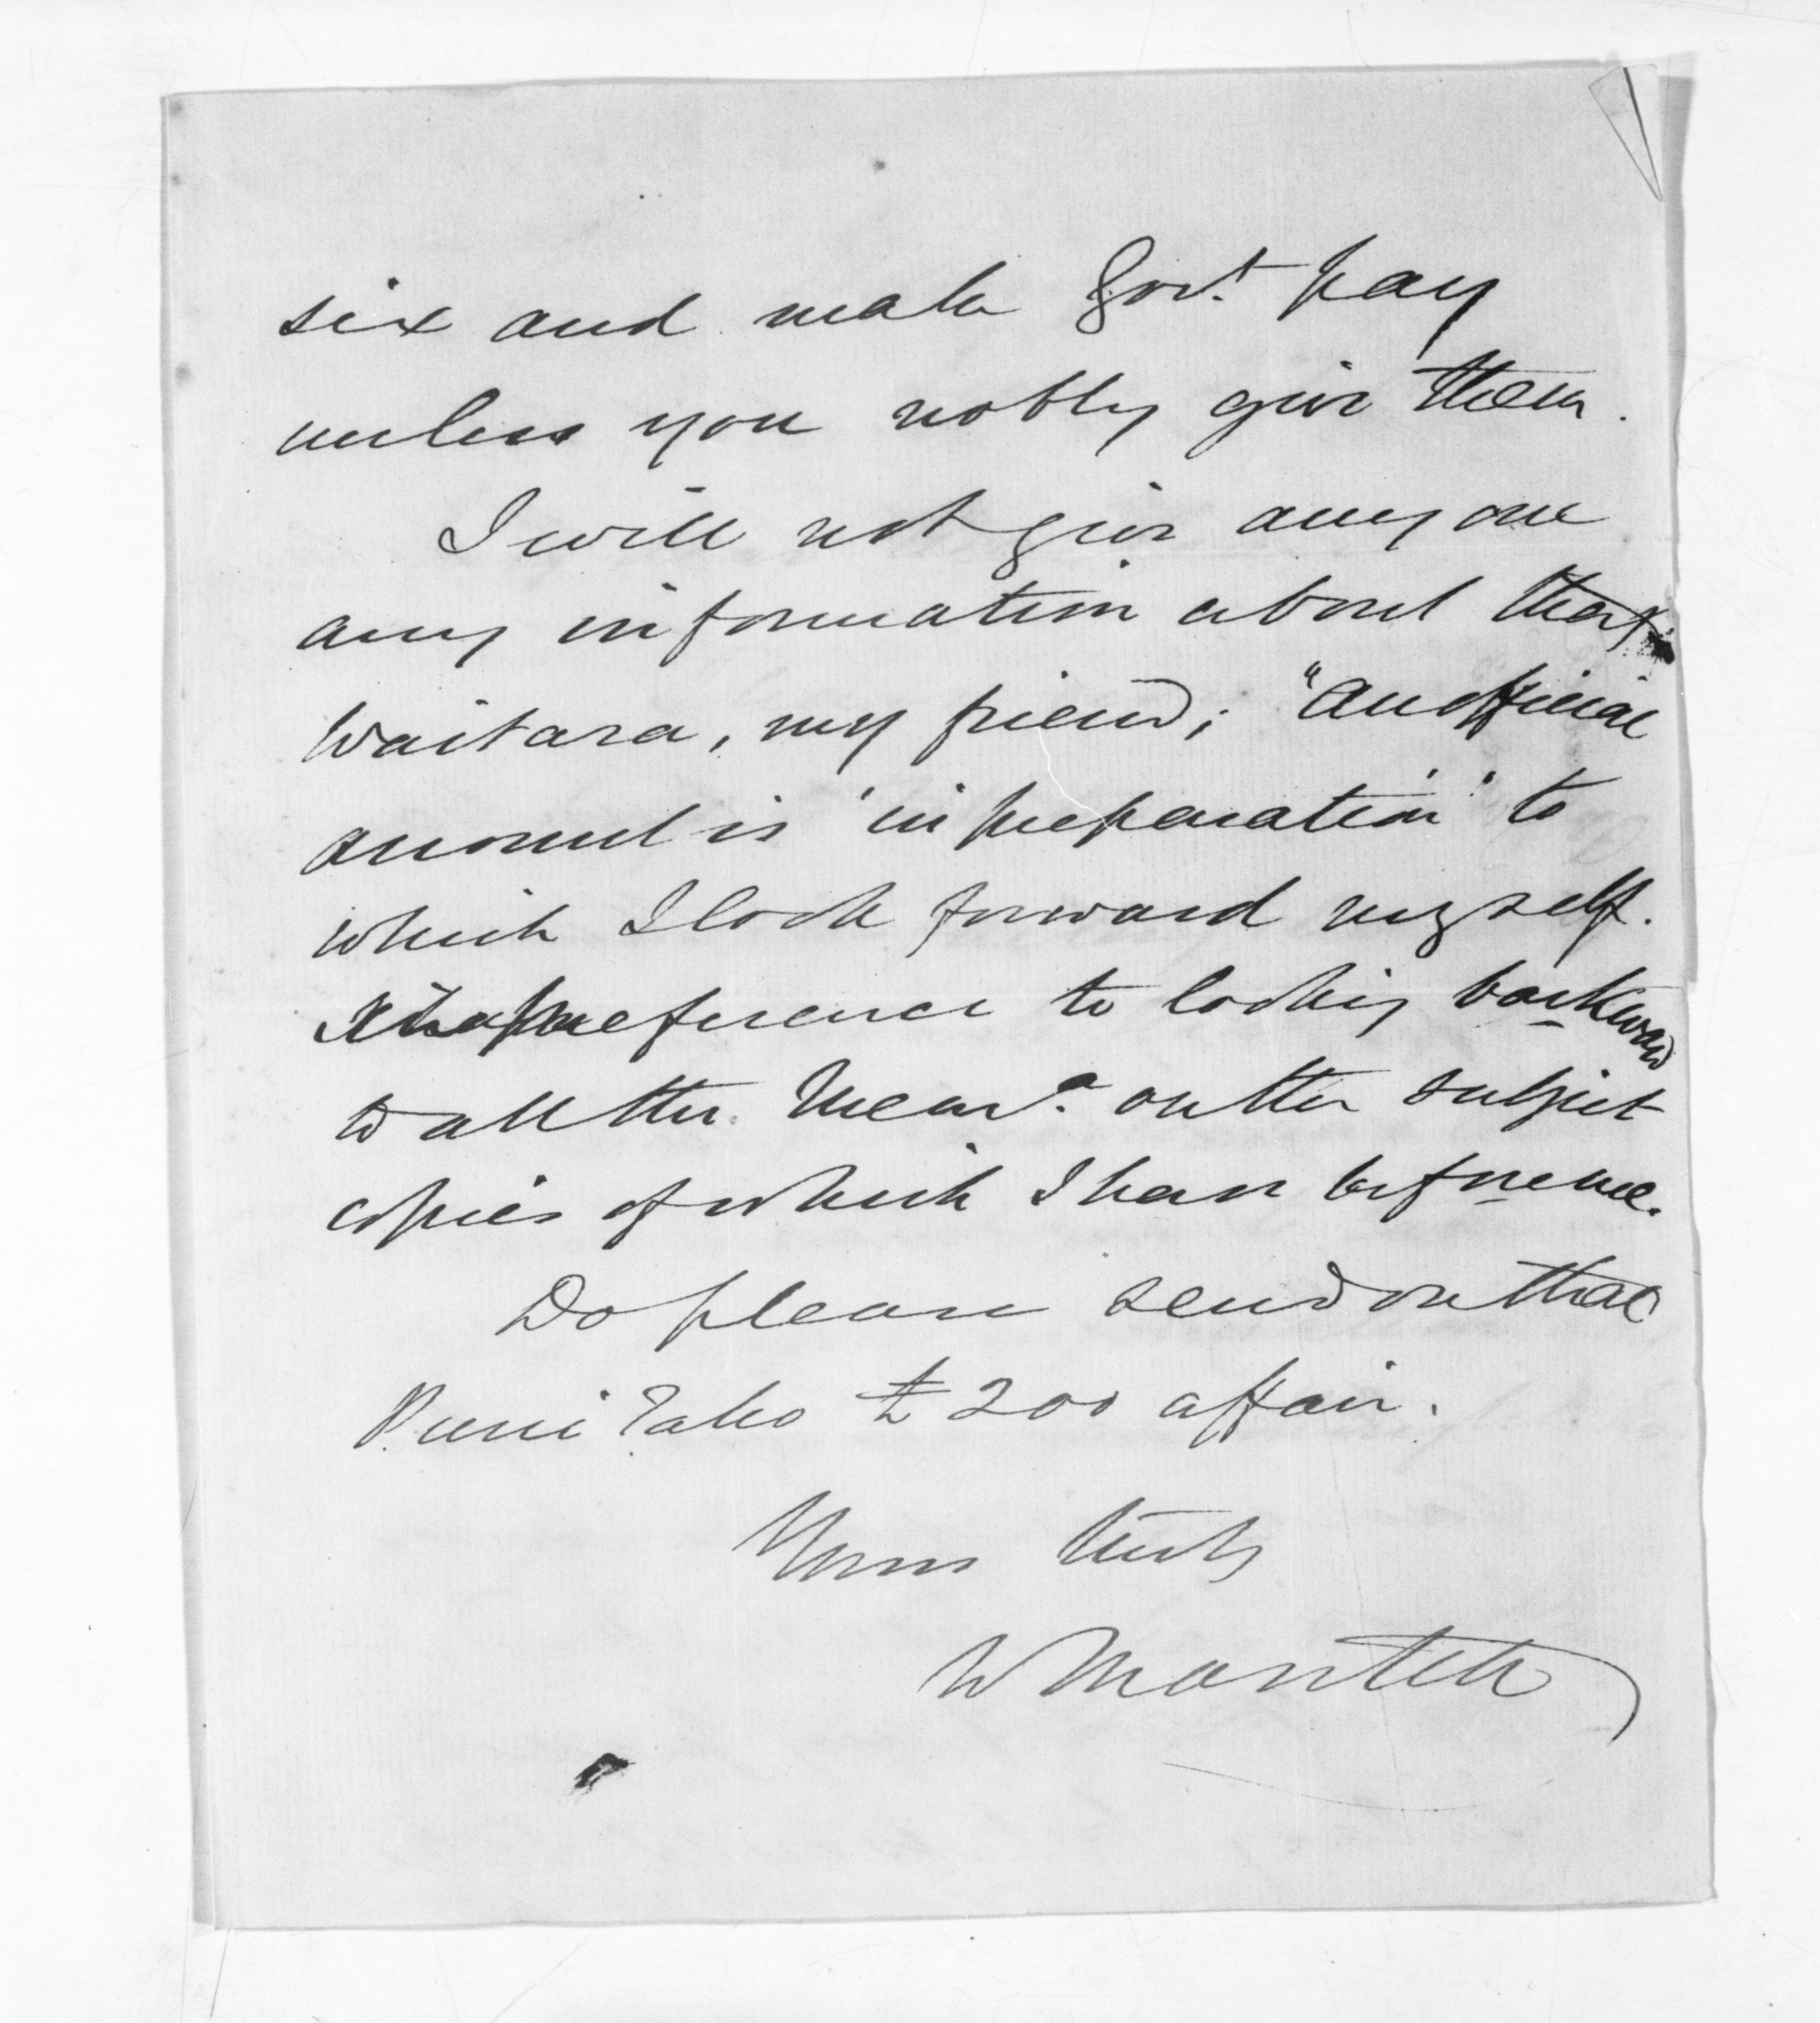 six and make Govt. pay
unless you nobly give them.
I will not give any one
any information about that
Waitara, my friend; "An official
account is 'in preparation' to
which I look forward myself.
preference to looking backward
to all the Mema. on the subject
copies of which I have before me.
Do please send on that
Puni Tako £200 affair.
Yours truly
W Mantell